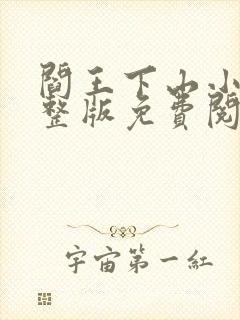 閻王下山小
整版免費閱
宇宙第一紅